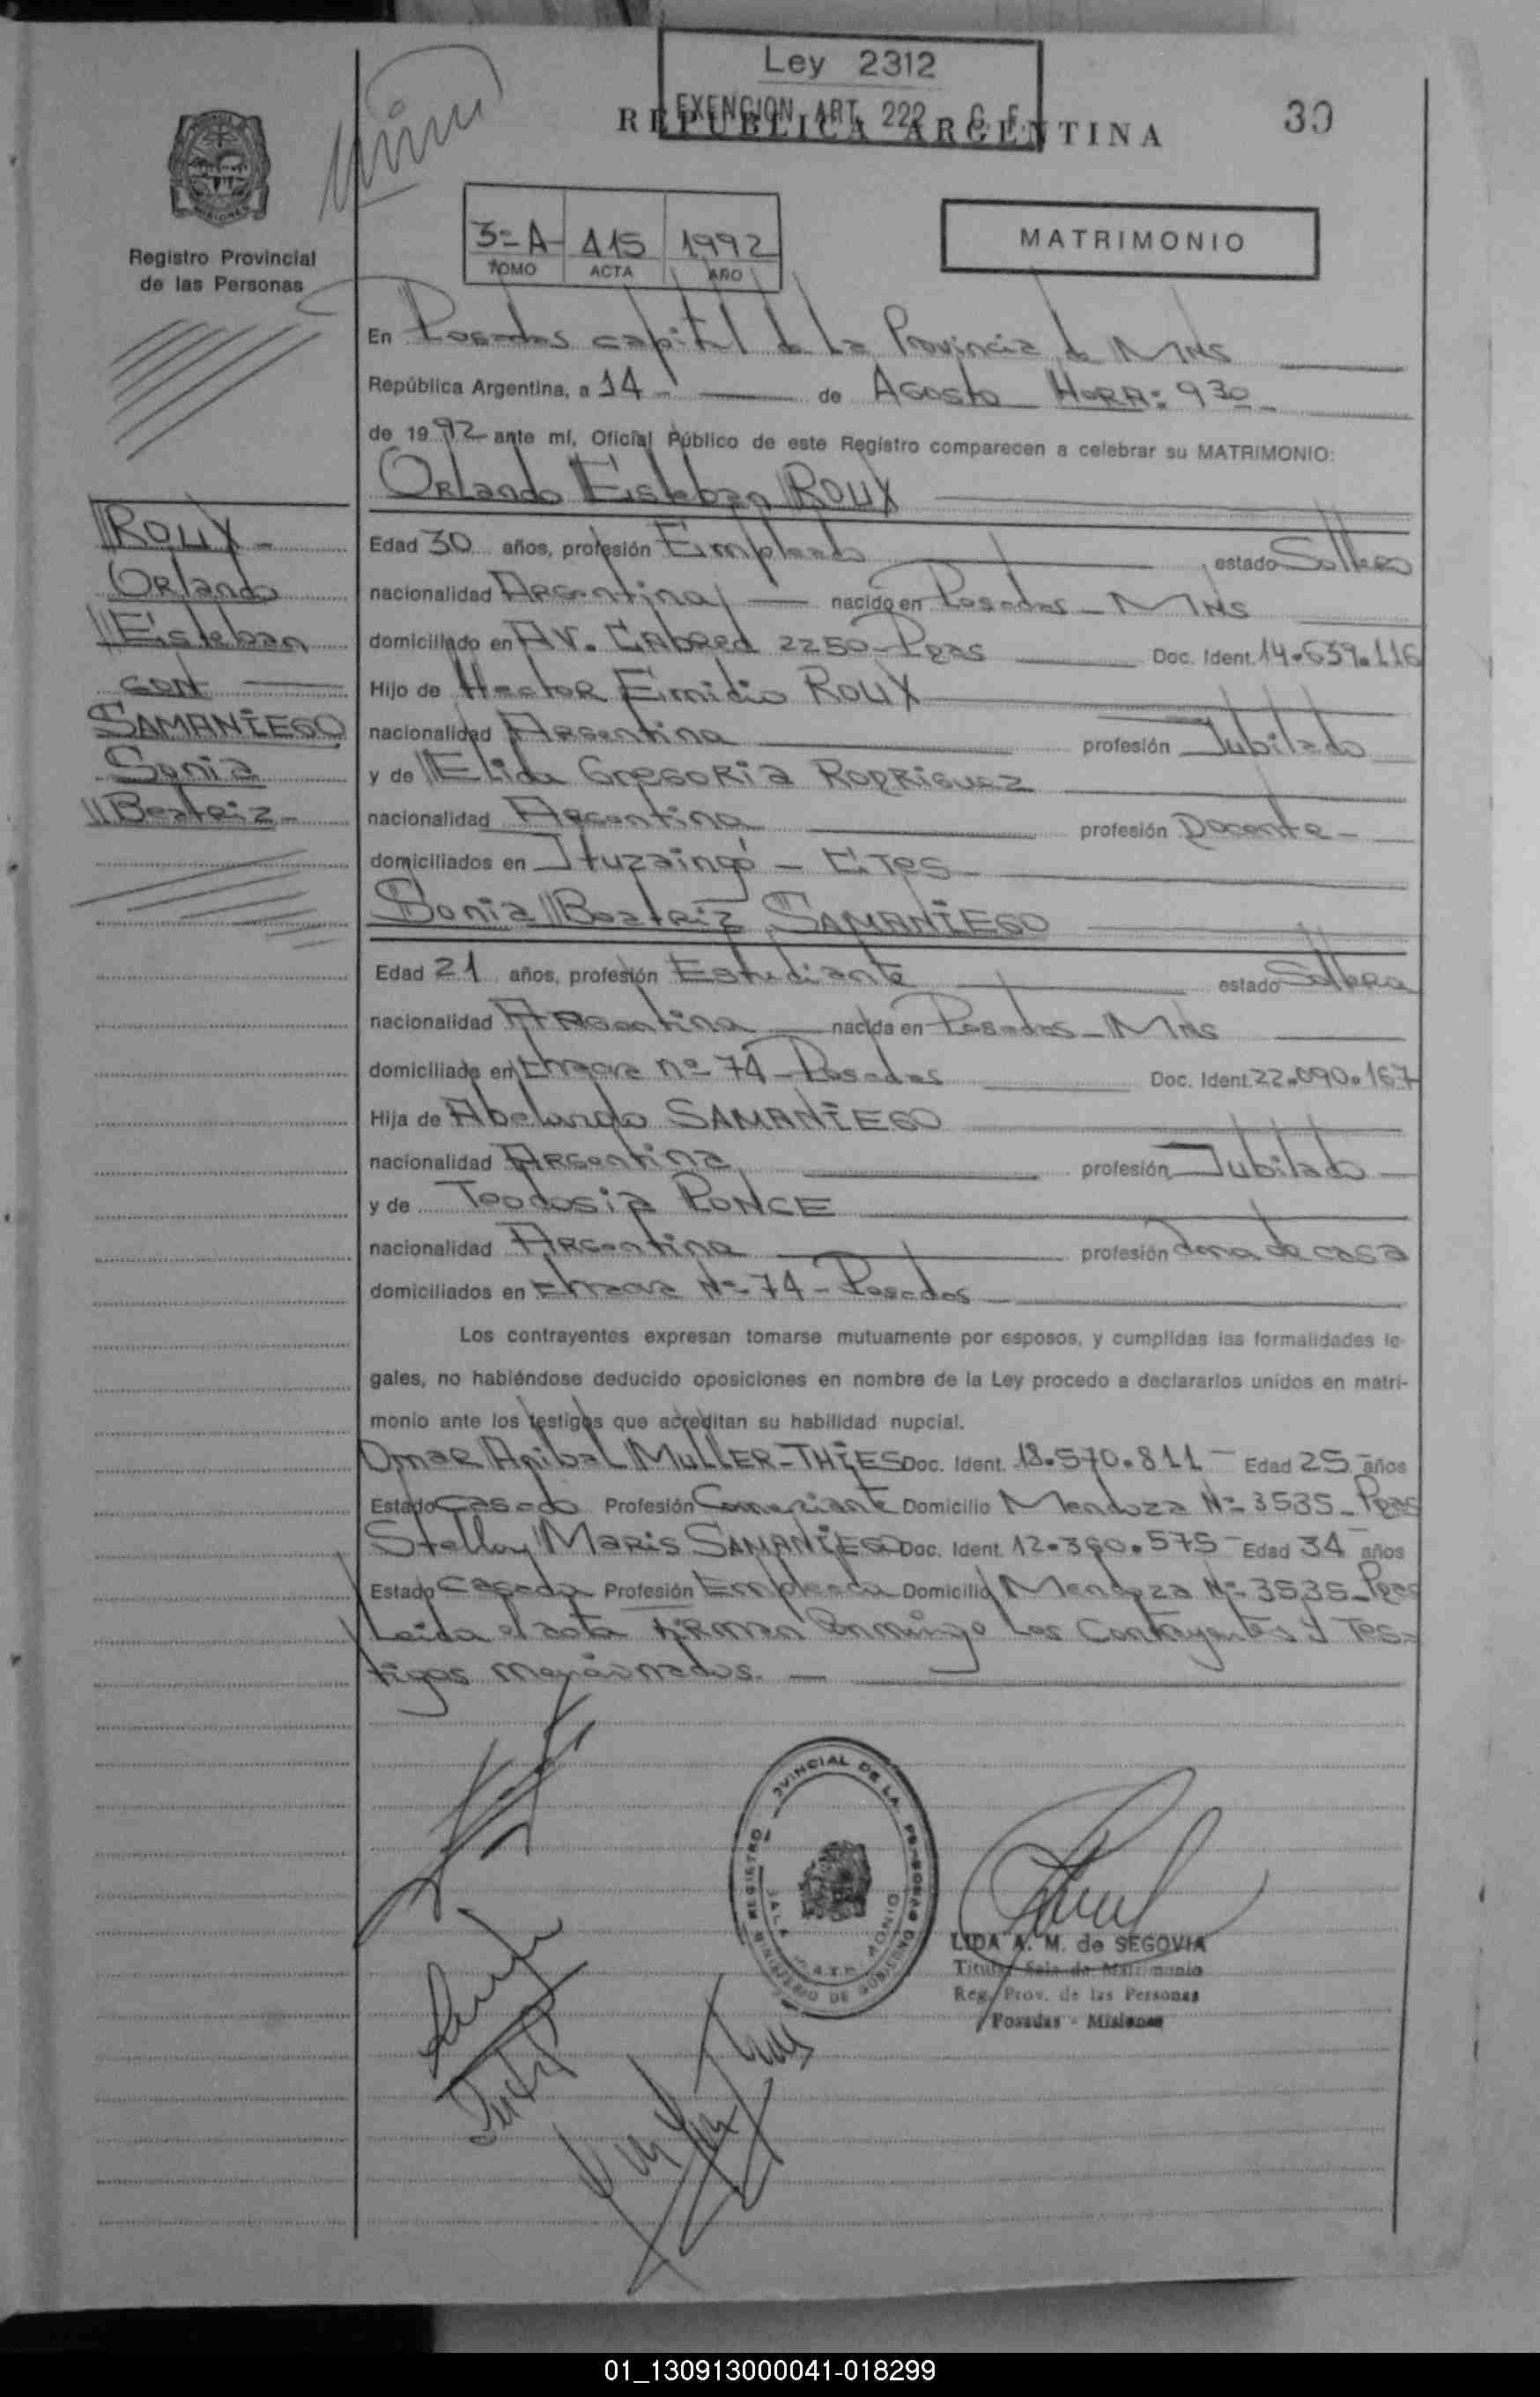 Ley 2312
EXENCION ART. 222 C. F.
REPUBLICA ARGENTINA
39
MISIONES
Registro Provincial
de las Personas
3º A 415 1992
TOMO ACTA AÑO
MATRIMONIO
En Posadas capital de la Provincia de Mnes
República Argentina, a 14 de Agosto HORA: 930
de 1992 ante mí, Oficial Público de este Registro comparecen a celebrar su MATRIMONIO:
Orlando Esteban ROUX
ROUX
Orlando
Esteban
con
SAMANIEGO
Sonia
Beatriz
Edad 30 años, profesión Empleado estado Soltero
nacionalidad Argentina nacido en Posadas - Mnes
domiciliado en Av. Cabred 2250 - Pdas Doc. Ident. 14.639.116
Hijo de Hector Emidio ROUX
nacionalidad Argentina profesión Jubilado
y de Elida Gregoria RODRIGUEZ
nacionalidad Argentina profesión Docente
domiciliados en Ituzaingó - Ctes
Sonia Beatriz SAMANIEGO
Edad 21 años, profesión Estudiante estado Soltera
nacionalidad Argentina nacida en Posadas - Mnes
domiciliada en nº 74 - Posadas Doc. Ident. 22.090.167
Hija de Abelardo SAMANIEGO
nacionalidad Argentina profesión Jubilado
y de Teodosia PONCE
nacionalidad Argentina profesión de casa
domiciliados en Nº 74 - Posadas
Los contrayentes expresan tomarse mutuamente por esposos, y cumplidas las formalidades le-
gales, no habiéndose deducido oposiciones en nombre de la Ley procedo a declararlos unidos en matri-
monio ante los testigos que acreditan su habilidad nupcial.
Omar Anibal MULLER-THIES Doc. Ident. 18.570.811 Edad 25 años
Estado Casado Profesión Comerciante Domicilio Mendoza Nº 3535 - Pdas
Stella Maris SAMANIEGO Doc. Ident. 12.360.575 Edad 34 años
Estado Casada Profesión Empleada Domicilio Mendoza Nº 3535 - Pdas
Leida el acta firman conmigo Los Contrayentes y Tes-
tigos mencionados.
REGISTRO PROVINCIAL DE LAS PERSONAS
MINISTERIO DE GOBIERNO
LIDA A. M. de SEGOVIA
Titular Sala de Matrimonio
Reg. Prov. de las Personas
Posadas - Misiones
01_130913000041-018299